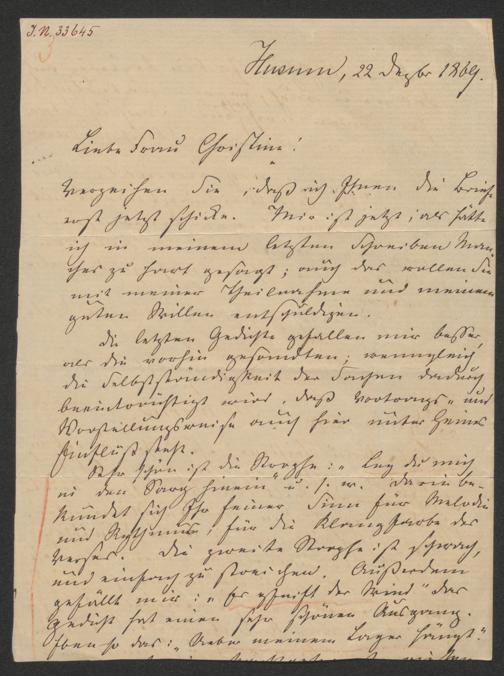 I.N. 33645
Husum, 22 Dezbr 1869.
Liebe Frau Christine!
Verzeihen Sie, daß ich Ihnen die Briefe
erst jetzt schicke. Mir ist jetzt, als hätte
ich in meinem letzten Schreiben Man-
ches zu hart gesagt; auch das wollen Sie
mit meiner Theilnahme und meinem
guten Willen entschuldigen.
Die letzten Gedichte gefallen mir besser,
als die vorhin gesandten; wenngleich
die Selbstständigkeit der Sachen dadurch
beeinträchtigt wird, daß Vortrags- und
Vorstellungsweise auch hier unter Heines
Einfluß steht.
Sehr schön ist die Strophe: "Leg du mich
in den Sarg hinein" u. s. w. Darin be-
kundet sich Ihr feiner Sinn für Melodie
und Rythmus, für die Klangfarbe des
Verses. Die zweite Strophe ist schwach,
und einfach zu streichen. Außerdem
gefällt mir: "Es pfeift der Wind" das
Gedicht hat einen sehr schönen Ausgang.
Eben so das: "Ueber meinem Lager hängt"